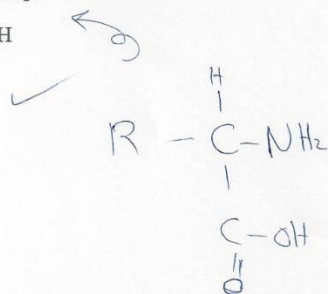 H
H
R - C - NH2
C - OH
O